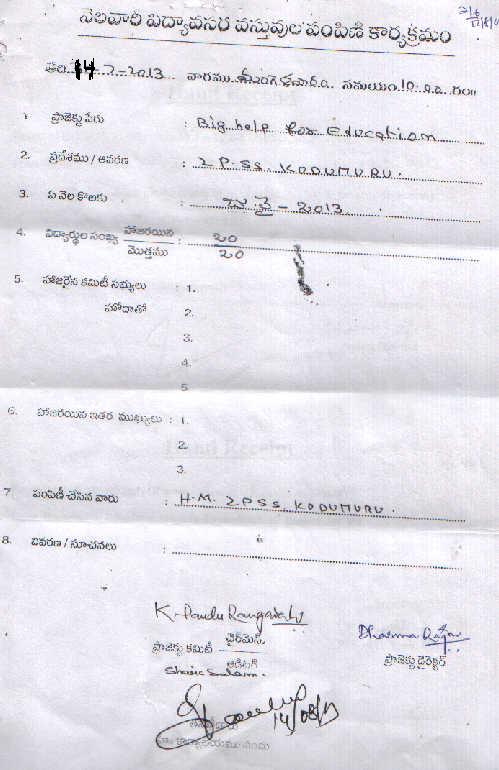 నెలవారి విద్యావసర వస్తువుల పంపిణి కార్యక్రమం
తేది 14 2-2013 వారము సమయం 10.00 గం॥
1. ప్రాజెక్టు పేరు : Big help for Education
2. ప్రదేశము / ఆవరణ : ZPSS. KODUMURU.
3. ఏ నెల కొరకు : జులై - 2013
4. విద్యార్థుల సంఖ్య హాజరయిన : 20
మొత్తము 20
5. హాజరైన కమిటీ సభ్యులు : 1.
హోదాతో 2.
3.
4.
5.
6. హాజరయిన ఇతర ముఖ్యులు : 1.
2.
3.
7. పంపిణీ చేసిన వారు : H.M. ZPSS, KODUMURU.
8. వివరణ / సూచనలు :
K. Pandu Ranga
ఛైర్మెన్ Dharma
ప్రాజెక్టు కమిటీ ప్రాజెక్టు డైరెక్టర్
ఆడిటర్
14/08/13